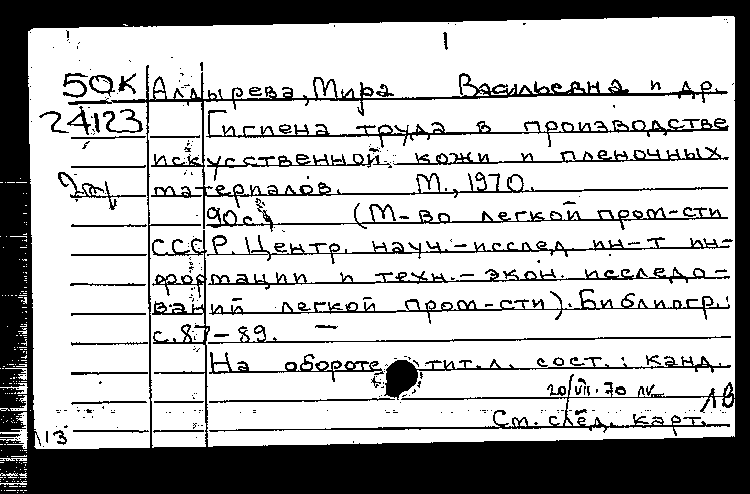 50К Алдырева, Мира Васильевна и др.
24123 Гигиена труда в производстве
искусственной кожи и пленочных
материалов. М., 1970.
90с. (М-во легкой пром-сти
СССР. Центр. науч.-исслед. ин-т ин-
формации и техн.-экон. исследо-
ваний легкой пром-сти). Библиогр.:
с. 87-89. —
На обороте тит. л. сост.: канд.
20/VII-70
См. след. карт. 1В
13